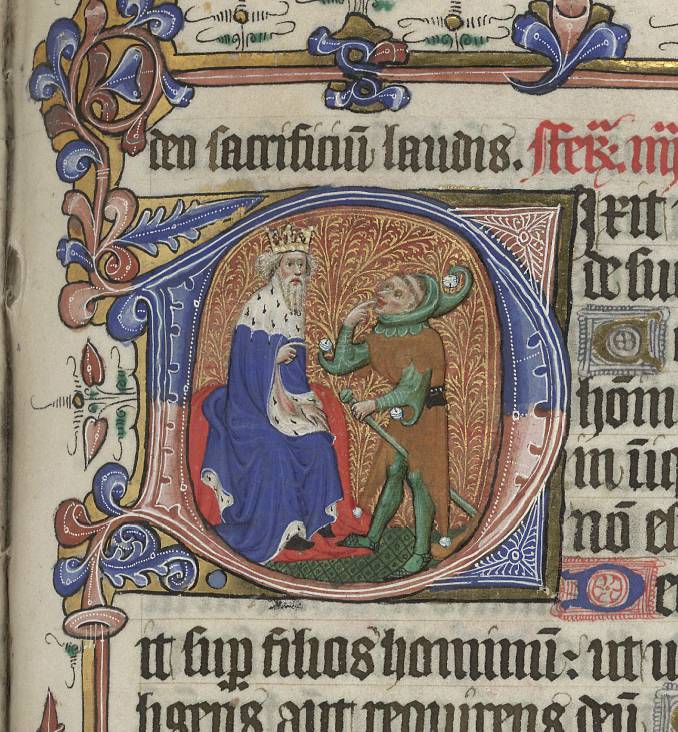 deo sacrificiū laudis. ffer̄. iiij
Dixit
de su
hōm
in iiq
nō e
it sup filios hominū: ut u
ligens aut requirens deū